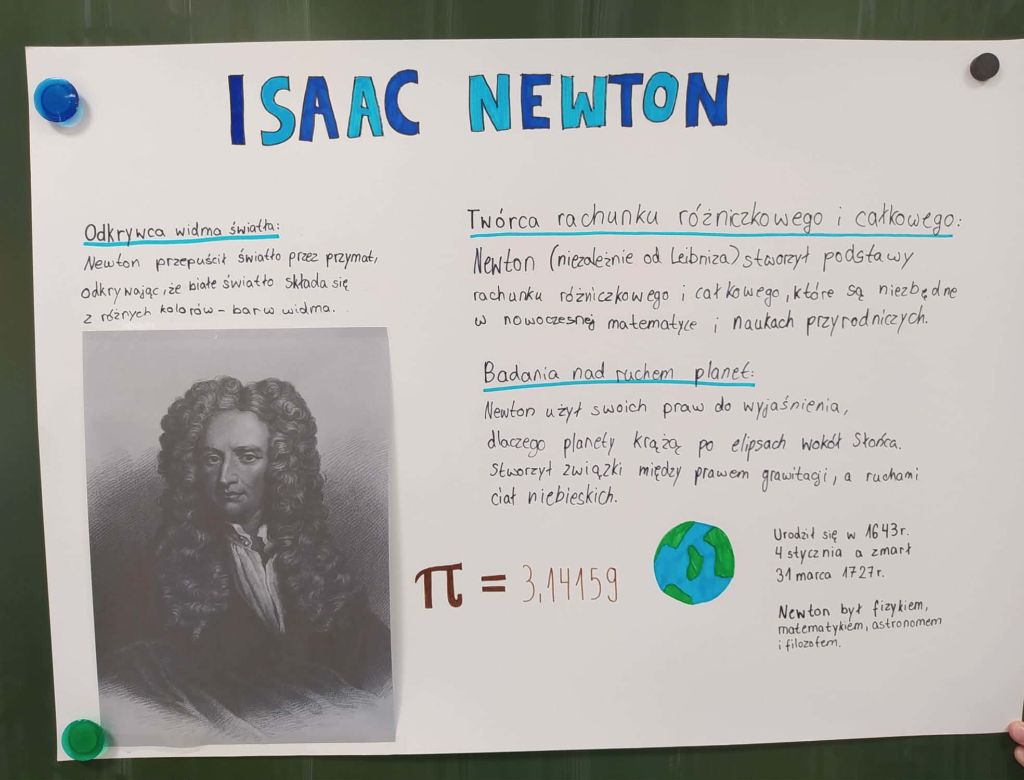 ISAAC NEWTON
Odkrywca widma światła:
Newton przepuścił światło przez przymat,
odkrywając, że białe światło składa się
z różnych kolorów - barw widma.
Twórca rachunku różniczkowego i całkowego:
Newton (niezależnie od Leibniza) stworzył podstawy
rachunku różniczkowego i całkowego, które są niezbędne
w nowoczesnej matematyce i naukach przyrodniczych.
Badania nad ruchem planet:
Newton użył swoich praw do wyjaśnienia,
dlaczego planety krążą po elipsach wokół Słońca.
Stworzył związki między prawem grawitagi, a ruchami
ciał niebieskich.
π = 3,14159
Urodził się w 1643r.
4 stycznia a zmarł
31 marca 1727r.
Newton był fizykiem,
matematykiem, astronomem
i filozofem.